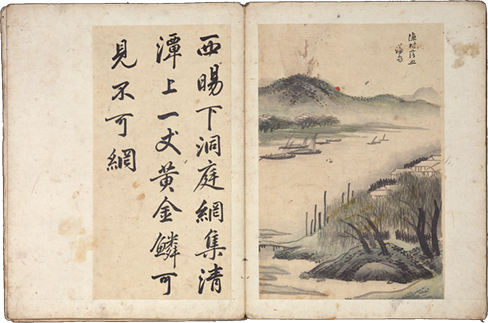 西暘下洞庭網集清
潭上一丈黃金鱗可
見不可網